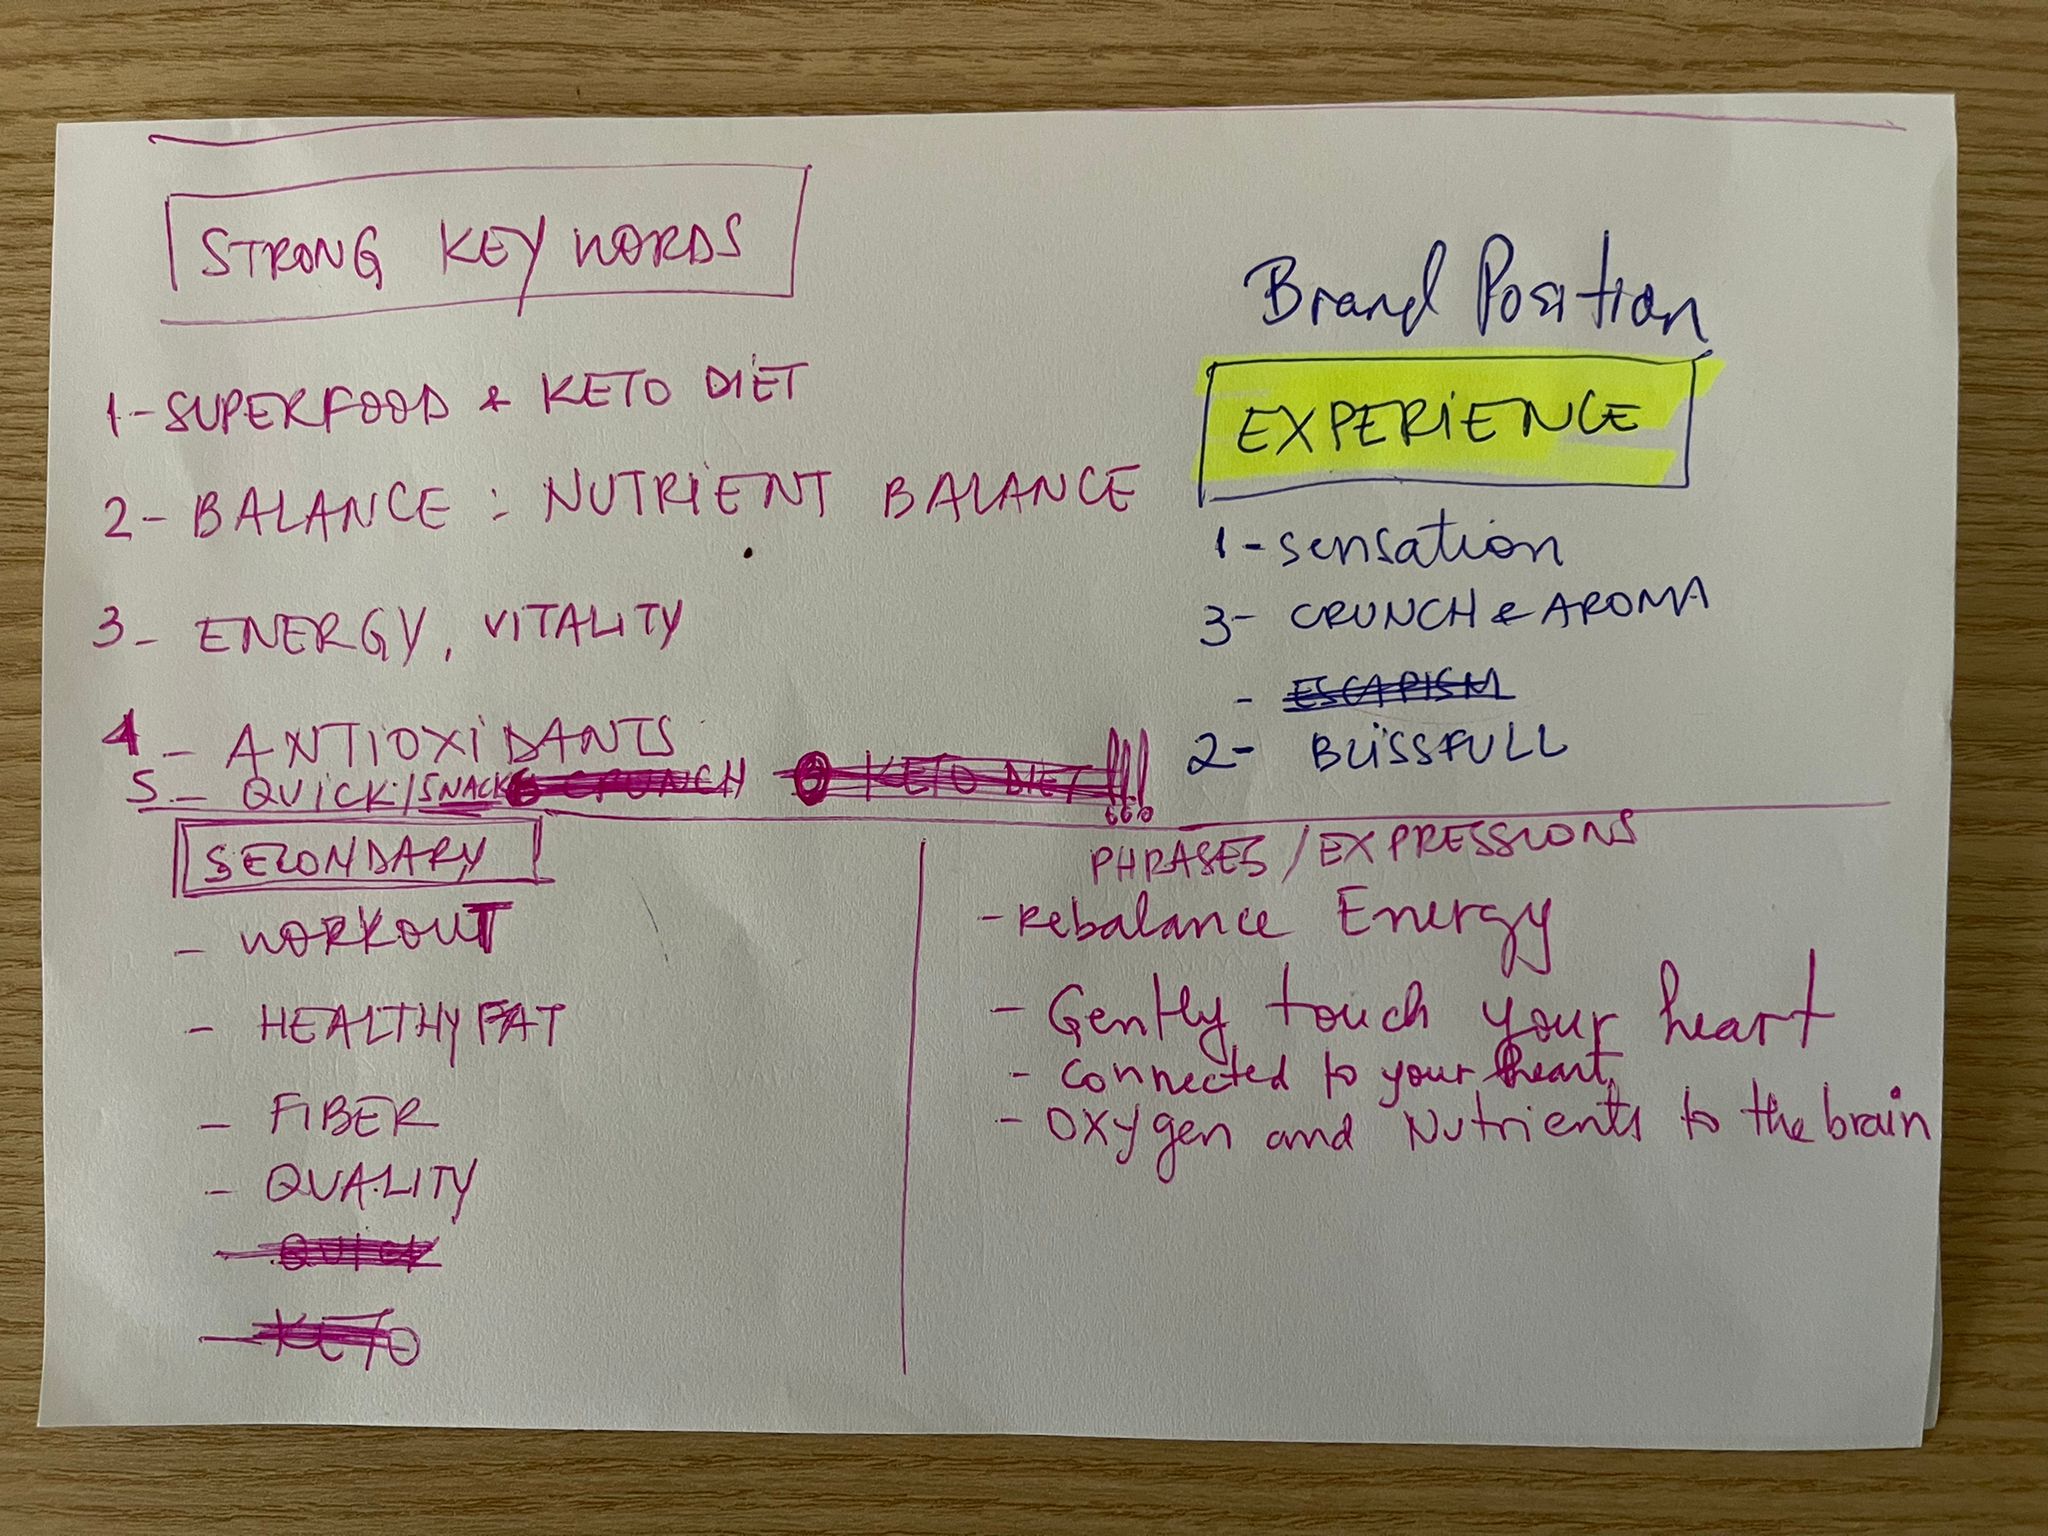 STRONG KEY WORDS
1- SUPERFOOD & KETO DIET
2- BALANCE : NUTRIENT BALANCE
3- ENERGY, VITALITY
4- ANTIOXIDANTS
5- QUICK/SNACK CRUNCH KETO DIET
Brand Position
EXPERIENCE
1- sensation
3- CRUNCH & AROMA
- ESCAPISM
2- BLISSFULL
SECONDARY
- WORKOUT
- HEALTHY FAT
- FIBER
- QUALITY
- QUICK
- KETO
PHRASES/EXPRESSIONS
- Rebalance Energy
- Gently touch your heart
- connected to your heart
- OXygen and Nutrients to the brain